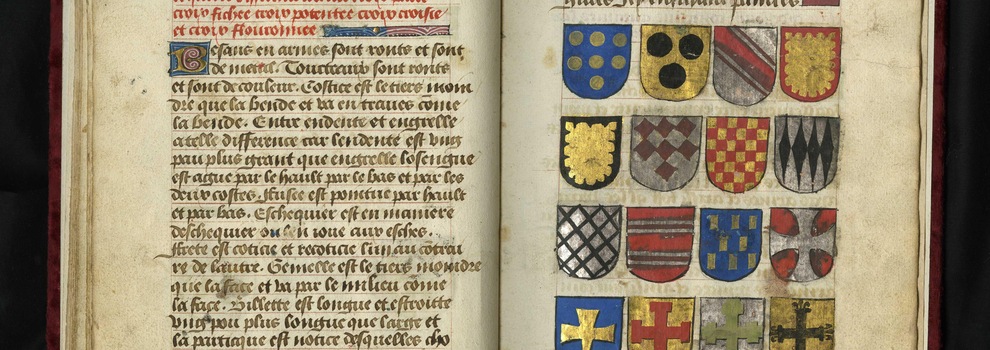 croix fichee croix potentee croix croisie
et croix flouronnee
Besans en armes sont ronts et sont
de metal. Tourteaux sont ronts
et sont de couleur. Costice est le tiers moin
dre que la bende et va en traues come
la bende. Entre endente et engrelle
a telle difference car lendente est vng
pau plus grant que engrelle losengue
est ague par le hault par le bas et par les
deux costes. Fusee est pointue par hault
et par bas. Eschequier est en maniere
deschequier ou len ioue aux esches.
Frete est coticie et recoticie lun au contrai
re de lautre. Gemelle est le tiers moindre
que la face et va par le milieu come
la face. Billette est longue et estroitte
vng pou plus longue que large et
la pratique est notice desquelles cho